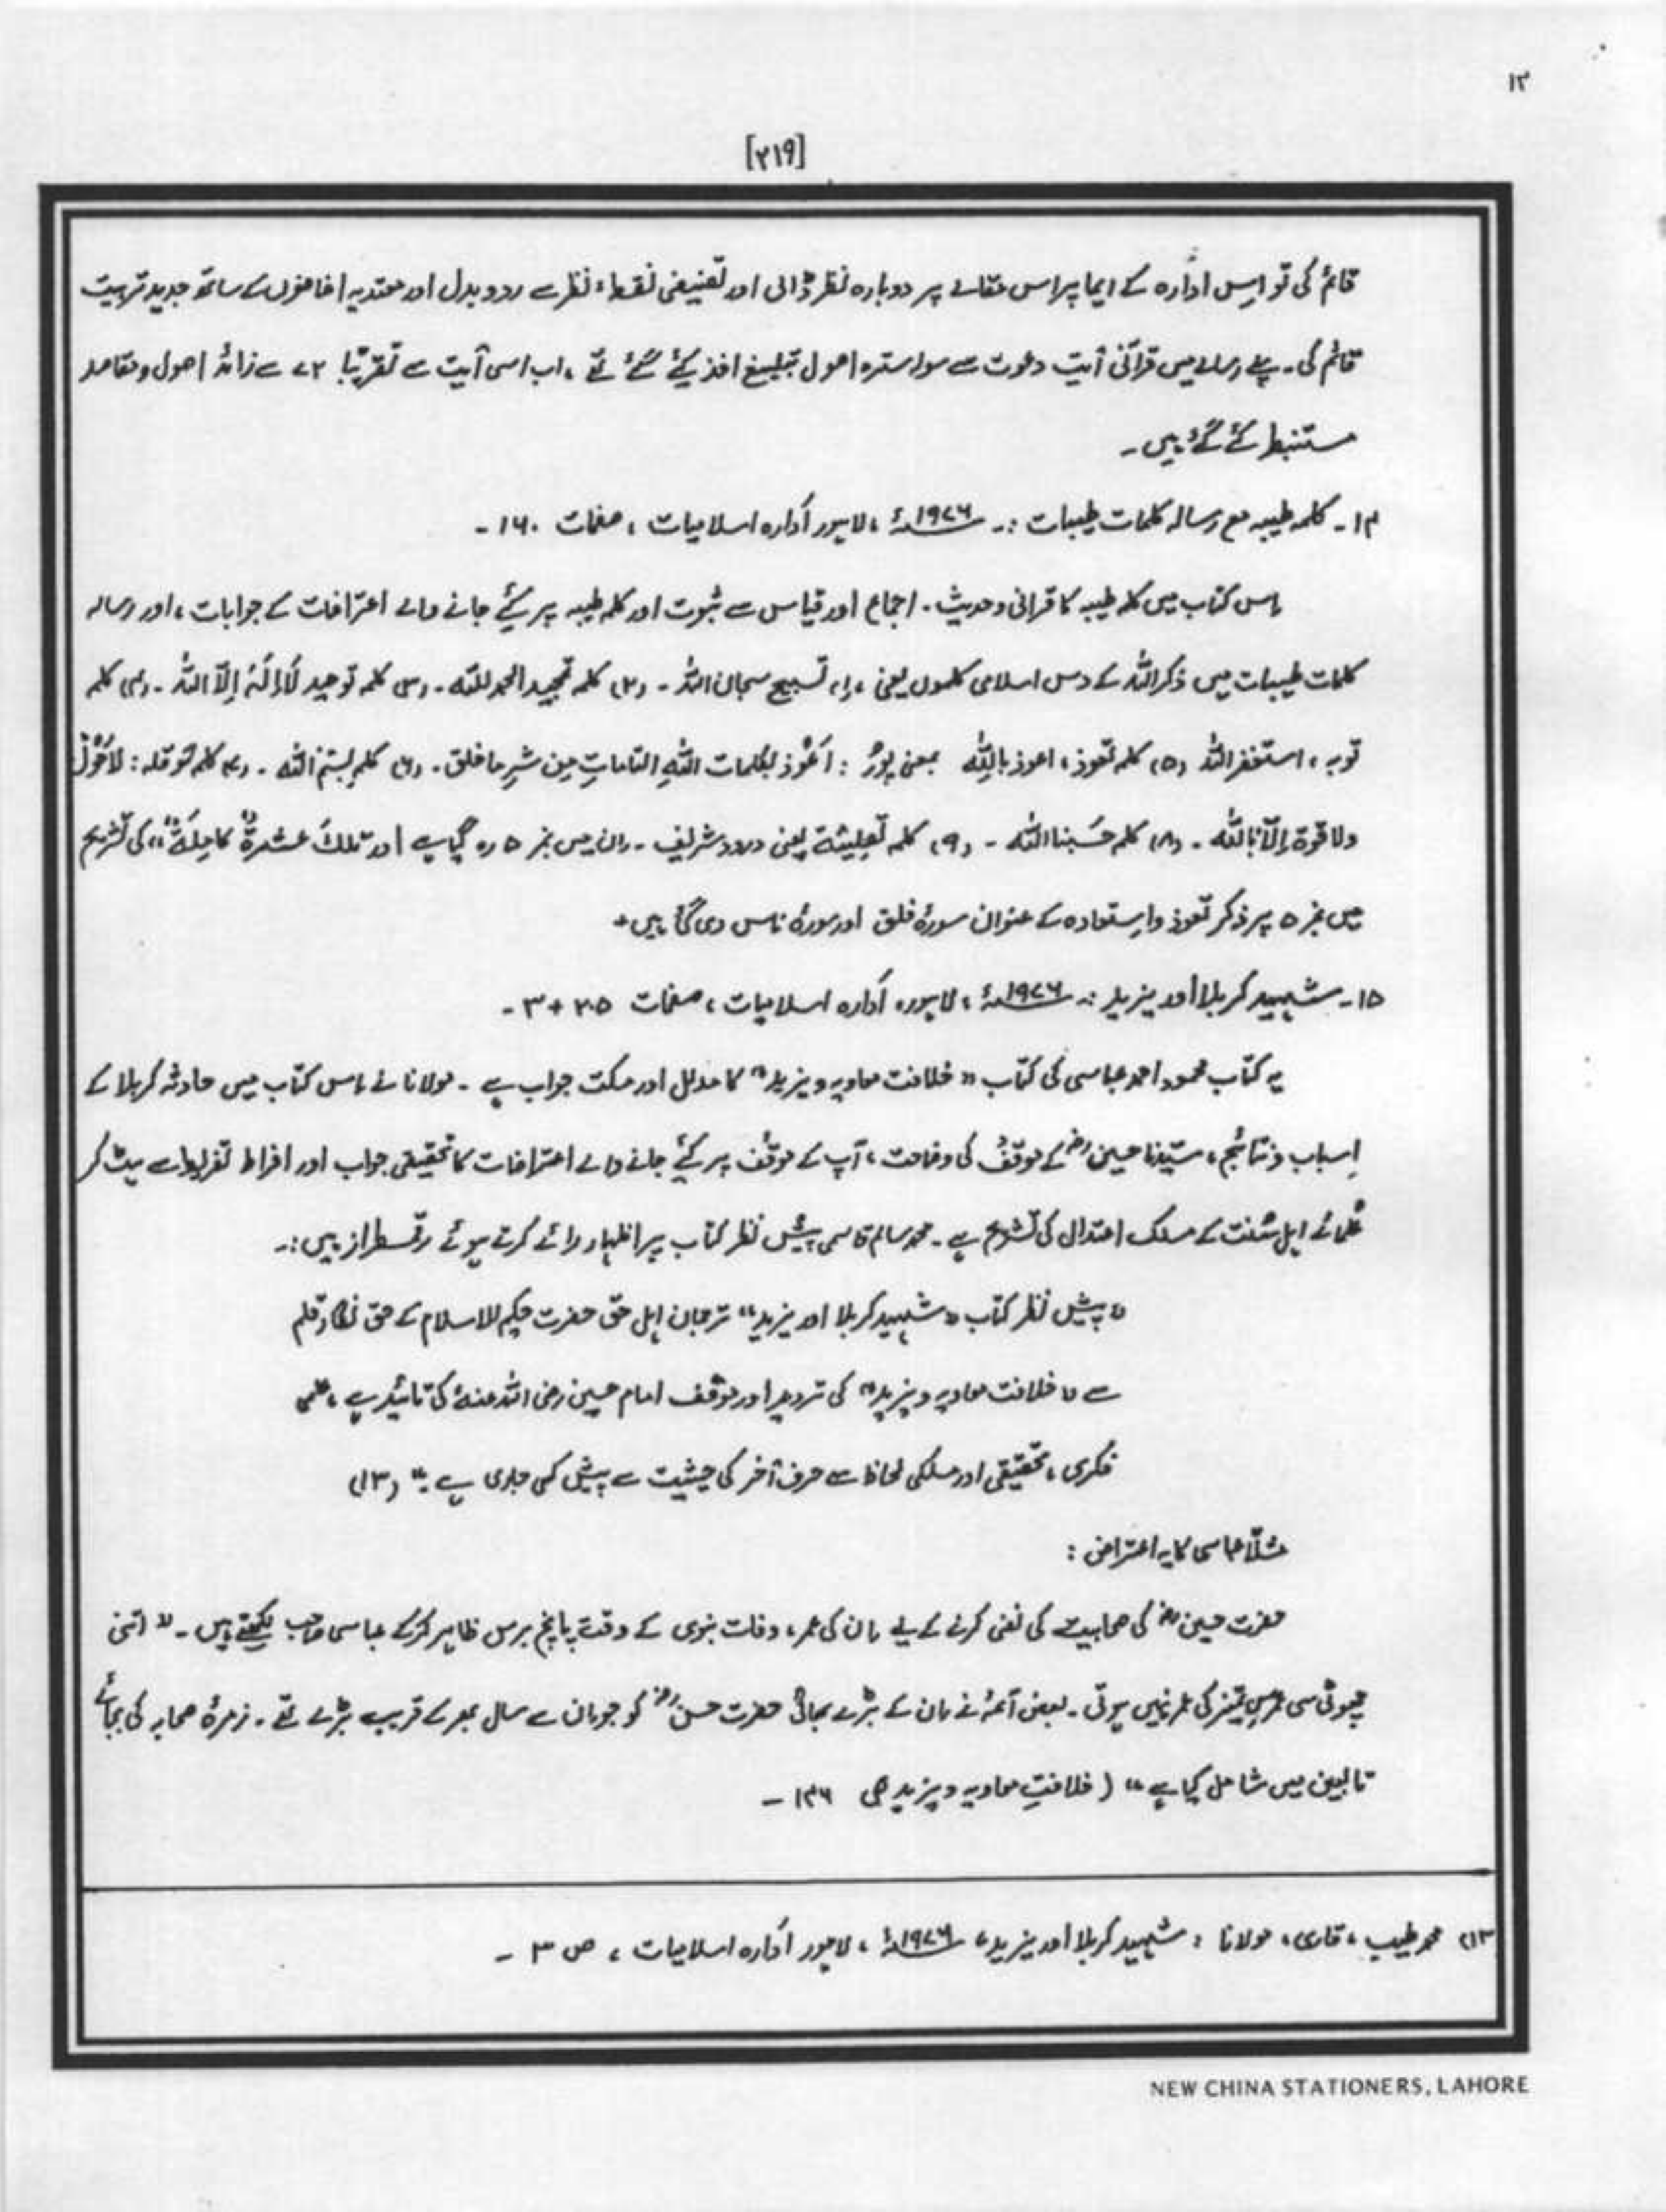 ۱۳
[۲۱۹]
قائم کی تو اِس ادارہ کے ایما پر اس مقالے پر دوبارہ نظر ڈالی اور تصنیفی نقطۂ نظر سے ردوبدل اور معتدبہ اضافوں کے ساتھ جدید تربیت
قائم کی۔ پہلے رسالے میں قرآنی آیتِ دعوت سے سولہ سترہ اصول تبلیغ اخذ کیئے گئے تھے، اب اسی آیت سے تقریبًا ۷۲ سے زائد اصول و مقاصد
مستنبط کئے گئے ہیں۔
۱۴۔ کلمہ طیبہ مع رسالہ کلمات طیبات :۔ ۱۹۷۶ء، لاہور ادارہ اسلامیات، صفحات ۱۶۰۔
اس کتاب میں کلمہ طیبہ کا قرآنی و حدیث۔ اجماع اور قیاس سے ثبوت اور کلمہ طیبہ پر کیئے جانے والے اعتراضات کے جوابات، اور رسالہ
کلمات طیبات میں ذکر اللہ کے دس اسلامی کلموں یعنی (۱) تسبیح سبحان اللہ۔ (۲) کلمہ تمجید الحمد للّٰہ۔ (۳) کلمہ توحید لَا اِلٰہَ اِلّا اللہ۔ (۴) کلمہ
توبہ، استغفر اللہ (۵) کلمہ تعوذ، اعوذ باللّٰہ بمعنی : اَعُوْذ بکلمات اللّٰہِ التاماتِ من شرِ ما خلق۔ (۶) کلمہ بسْم اللّٰہ۔ (۷) کلمہ حوقلہ : لَاحَوْلَ
ولا قوۃ اِلّا بِاللّٰہ۔ (۸) کلمہ حَسْبنا اللّٰہ۔ (۹) کلمہ تصلیتہ یعنی درود شریف۔ ان میں نمبر ۵ رہ گیا ہے اور تلکَ عشرۃٌ کامِلَۃٌ" کی تشریح
میں نمبر ۵ پر ذکر تعوذ و استعاذہ کے عنوان سورۂ فلق اور سورۂ ناس دی گئی ہیں۔
۱۵۔ شہید کربلا اور یزید :۔ ۱۹۷۶ء، لاہور، ادارہ اسلامیات، صفحات ۲۰۵ + ۳۔
یہ کتاب محمود احمد عباسی کی کتاب "خلافت معاویہ و یزید" کا مدلل اور مسکت جواب ہے۔ مولانا نے اس کتاب میں حادثہ کربلا کے
اسباب و نتائج، سیّدنا حسینؓ کے موقف کی وضاحت، آپ کے موقف پر کیئے جانے والے اعتراضات کا تحقیقی جواب اور افراط تفریط سے ہٹ کر
عُلمائے اہل سُنت کے مسلک اعتدال کی تشریح ہے۔ محمد سالم قاسمی پیشِ نظر کتاب پر اظہار رائے کرتے ہوئے رقمطراز ہیں:۔
"پیش نظر کتاب "شہید کربلا اور یزید" ترجمان اہل حق حضرت حکیم الاسلام کے حق نگار قلم
سے "خلافت معاویہ و یزید" کی تردید اور موقف امام حسین رضی اللہ عنہٗ کی تائید ہے، علمی
فکری، تحقیقی اور مسلکی لحاظ سے حرف آخر کی حیثیت سے پیش کی جارہی ہے۔" (۱۳)
مثلاً عباسی کا یہ اعتراض :
حضرت حسینؓ کی صحابیت کی نفی کرنے کے لیے ان کی عمر، وفات نبوی کے وقت پانچ برس ظاہر کرکے عباسی صاحب لکھتے ہیں۔ "اتنی
چھوٹی سی عمر سِ تمیز کی عمر نہیں ہوتی۔ بعض آئمہ نے ان کے بڑے بھائی حضرت حسنؓ کو جو ان سے سال بھر کے قریب بڑے تھے۔ زمرۂ صحابہ کی بجائے
تابعین میں شامل کیا ہے" (خلافتِ معاویہ و یزید ص ۱۴۶ ۔
۱۳) محمد طیب، قاری، مولانا : شہید کربلا اور یزید، ۱۹۷۶ء، لاہور ادارہ اسلامیات، ص ۳ ۔
NEW CHINA STATIONERS, LAHORE